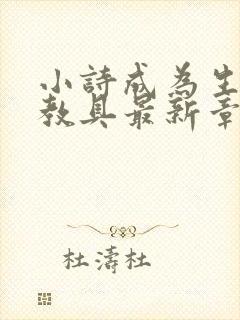 小詩成為生
教具最新章
杜濤杜